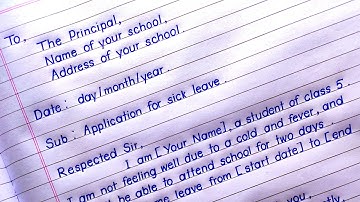 To,
The Principal,
Name of your school,
Address of your school.
Date : day/month/year.
Sub : Application for sick leave.
Respected Sir,
I am [Your Name], a student of class 5.
I am not feeling well due to a cold and fever, and
be able to attend school for two days.
leave from [start date] to [end